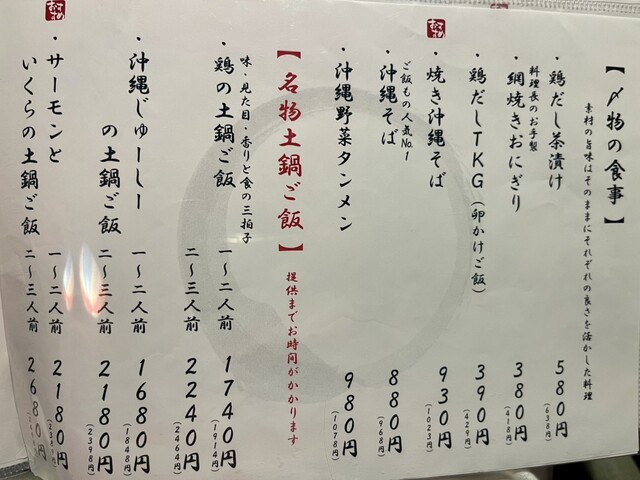 【〆物の食事】
素材の旨味はそのままにそれぞれの良さを活かした料理
・鶏だし茶漬け 580円
(638円)
料理長のお手製
・網焼きおにぎり 380円
(418円)
・鶏だしTKG(卵かけご飯) 390円
(429円)
・焼き沖縄そば 930円
(1023円)
ご飯もの人気No.1
・沖縄そば 880円
(968円)
・沖縄野菜タンメン 980円
(1078円)
【名物土鍋ご飯】 提供までお時間がかかります
味・見た目・香りと食の三拍子
・鶏の土鍋ご飯 一〜二人前 1740円
(1914円)
二〜三人前 2240円
(2464円)
・沖縄じゅーしー 一〜二人前 1680円
(1848円)
の土鍋ご飯 二〜三人前 2180円
(2398円)
・サーモンと 一〜二人前 2180円
いくらの土鍋ご飯 二〜三人前 2680円